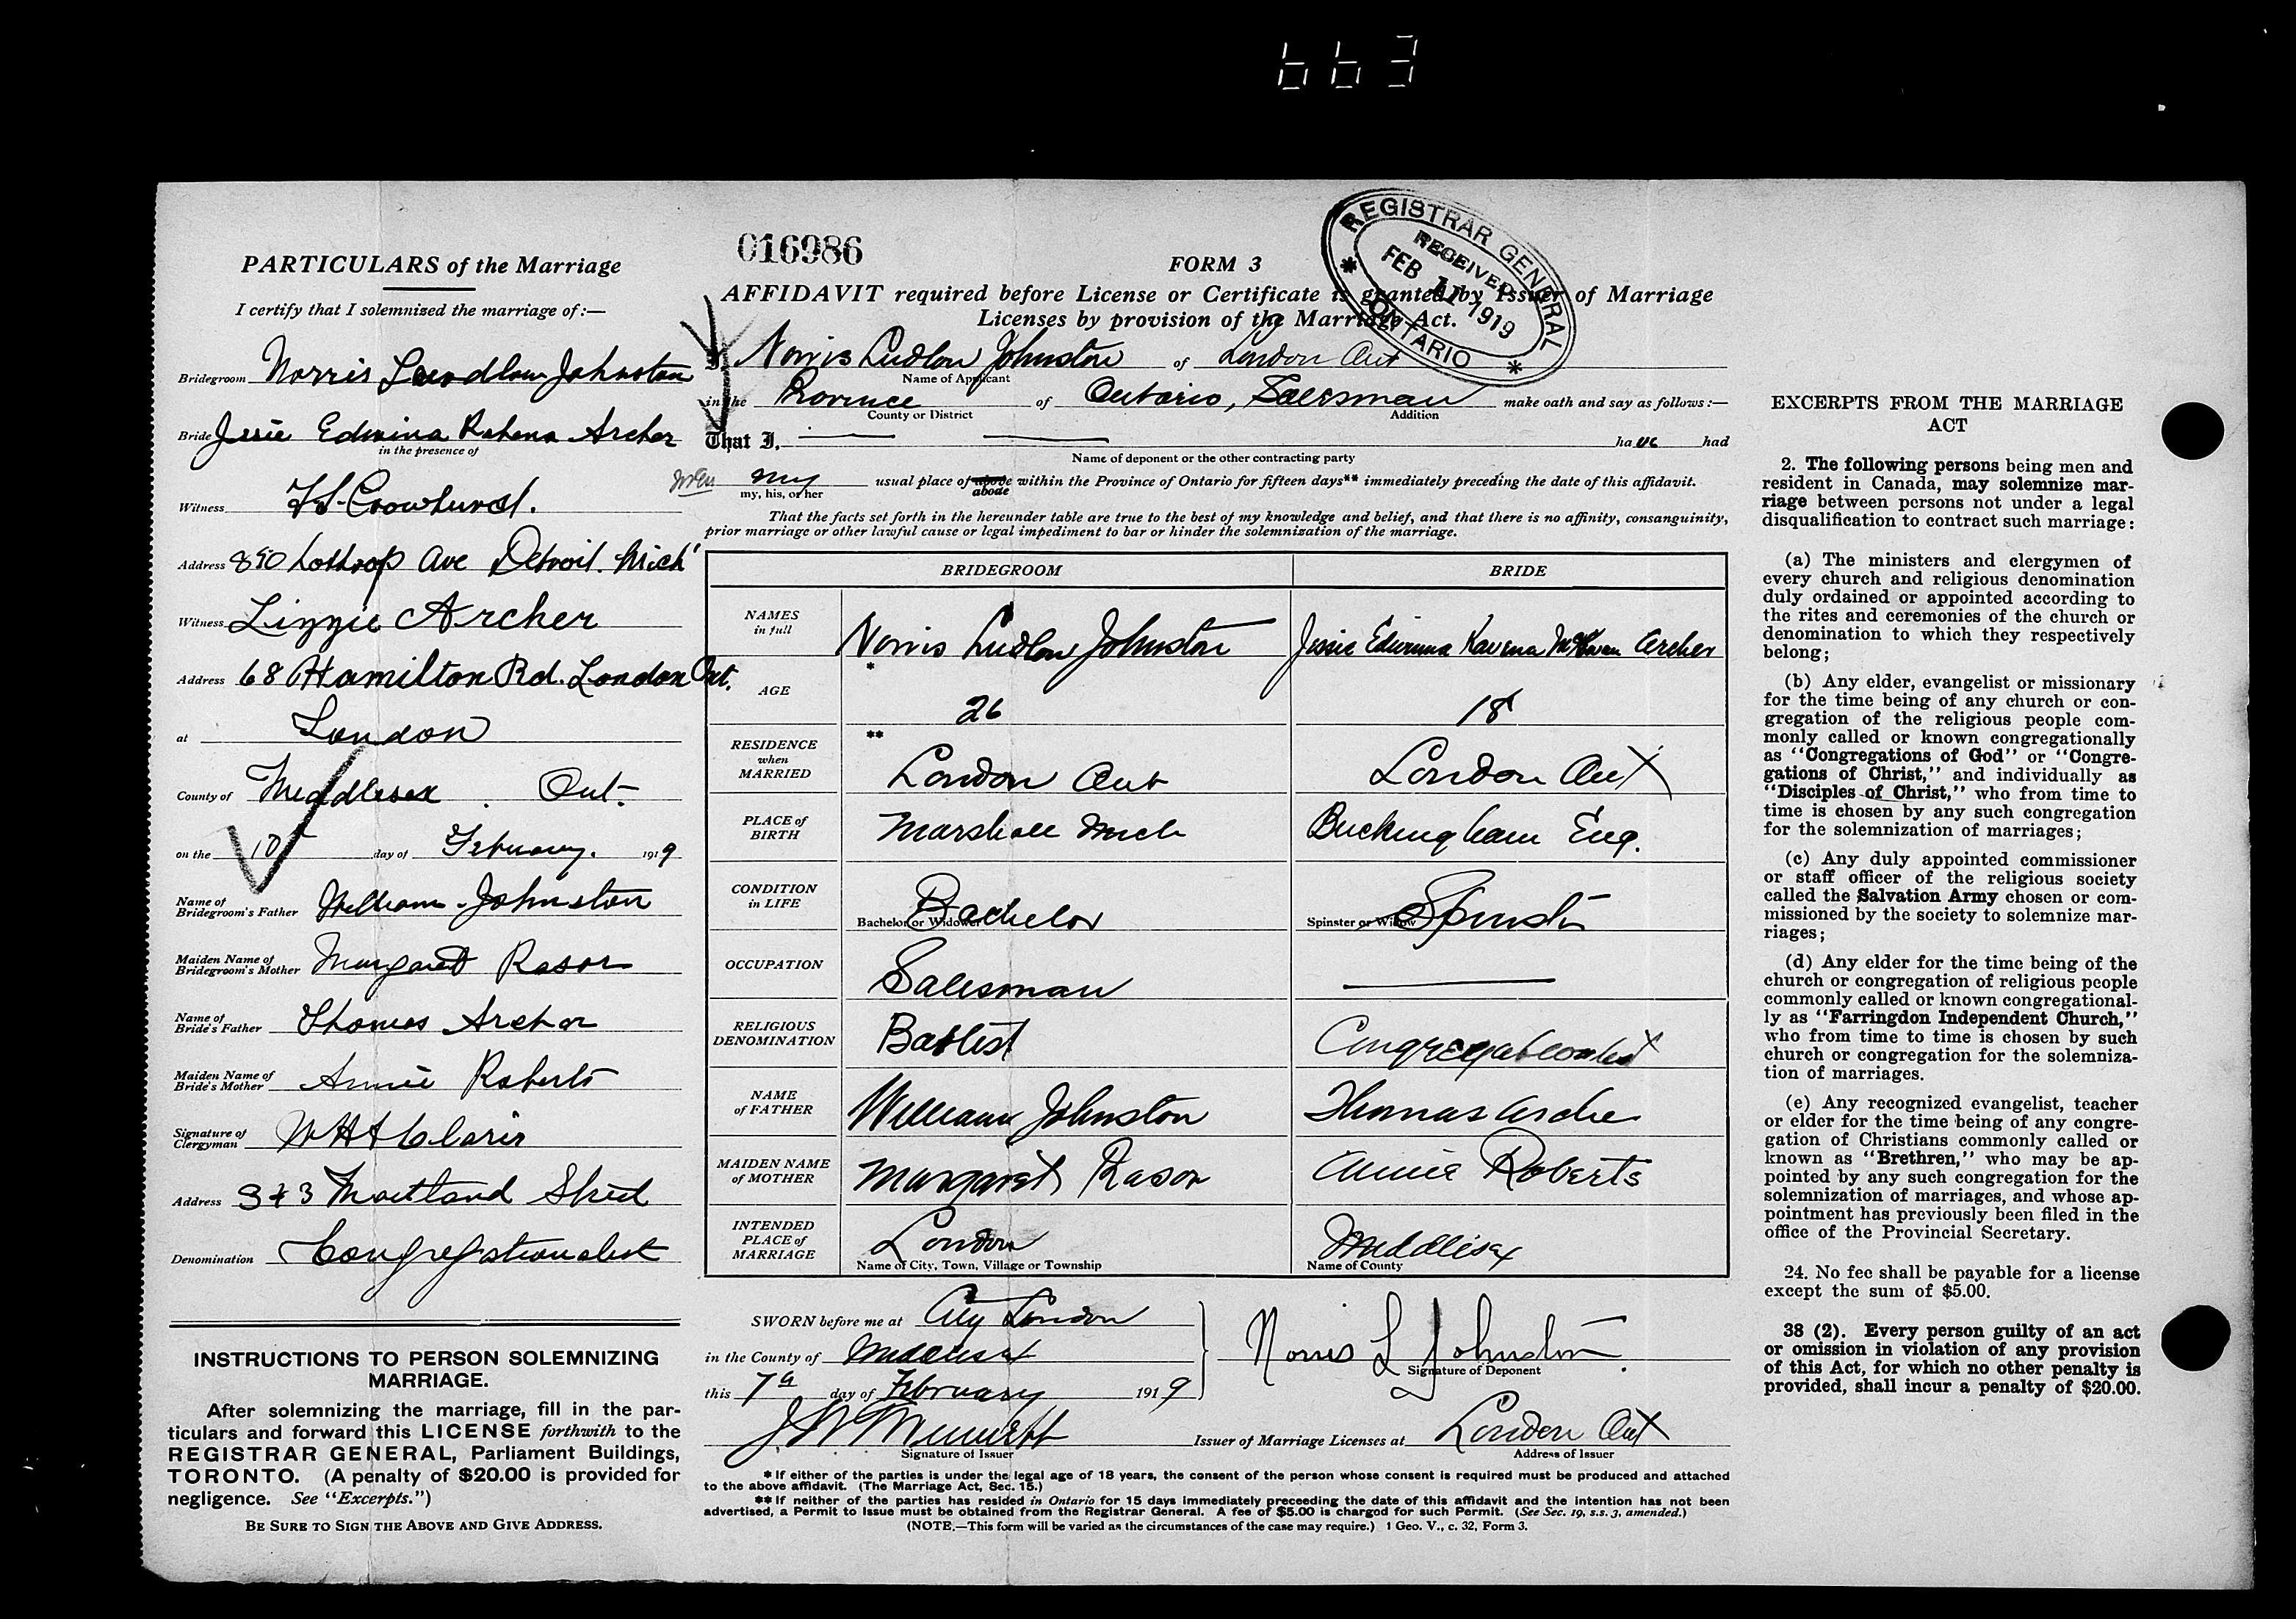 663
016986
REGISTRAR GENERAL
RECEIVED
FEB 11 1919
* ONTARIO *
PARTICULARS of the Marriage
I certify that I solemnized the marriage of:—
Bridegroom Norris Ludlow Johnston
Bride Jessie Edwina Archer
in the presence of
Witness Crowhurst.
Address 890 Lothrop Ave Detroit. Mich
Witness Lizzie Archer
Address 68 Hamilton Rd. London Ont.
at London
County of Middlesex. Ont.
on the 10 day of February. 1919
Name of Bridegroom's Father William Johnston
Maiden Name of Bridegroom's Mother Margaret Rasor
Name of Bride's Father Thomas Archer
Maiden Name of Bride's Mother Annie Roberts
Signature of Clergyman
Address 343 Maitland Street
Denomination Congregationalist
INSTRUCTIONS TO PERSON SOLEMNIZING
MARRIAGE.
After solemnizing the marriage, fill in the par-
ticulars and forward this LICENSE forthwith to the
REGISTRAR GENERAL, Parliament Buildings,
TORONTO. (A penalty of $20.00 is provided for
negligence. See "Excerpts.")
BE SURE TO SIGN THE ABOVE AND GIVE ADDRESS.
FORM 3
AFFIDAVIT required before License or Certificate is granted by Issuer of Marriage
Licenses by provision of the Marriage Act.
I, Norris Ludlow Johnston of London Ont
Name of Applicant
in the Province of Ontario, Salesman make oath and say as follows:—
County or District Addition
That I. have had
Name of deponent or the other contracting party
my usual place of abode within the Province of Ontario for fifteen days** immediately preceding the date of this affidavit.
my, his, or her abode
That the facts set forth in the hereunder table are true to the best of my knowledge and belief, and that there is no affinity, consanguinity,
prior marriage or other lawful cause or legal impediment to bar or hinder the solemnization of the marriage.
BRIDEGROOM BRIDE
NAMES in full Norris Ludlow Johnston Jessie Edwinna Archer
* AGE 26 18
** RESIDENCE when MARRIED London Ont London Ont
PLACE of BIRTH Marshall Mich Buckingham Eng.
CONDITION in LIFE Bachelor Spinster
Bachelor or Widower Spinster or Widow
OCCUPATION Salesman —
RELIGIOUS DENOMINATION Baptist Congregationalist
NAME of FATHER William Johnston Thomas Archer
MAIDEN NAME of MOTHER Margaret Rasor Annie Roberts
INTENDED PLACE of MARRIAGE London Middlesex
Name of City, Town, Village or Township Name of County
SWORN before me at City London
in the County of Middlesex
this 7th day of February 1919
Norris L Johnston.
Signature of Deponent
Signature of Issuer
Issuer of Marriage Licenses at London Ont
Address of Issuer
* If either of the parties is under the legal age of 18 years, the consent of the person whose consent is required must be produced and attached
to the above affidavit. (The Marriage Act, Sec. 15.)
** If neither of the parties has resided in Ontario for 15 days immediately preceeding the date of this affidavit and the intention has not been
advertised, a Permit to issue must be obtained from the Registrar General. A fee of $5.00 is charged for such Permit. (See Sec. 19, s.s. 3, amended.)
(NOTE.—This form will be varied as the circumstances of the case may require.) 1 Geo. V., c. 32, Form 3.
EXCERPTS FROM THE MARRIAGE
ACT
2. The following persons being men and
resident in Canada, may solemnize mar-
riage between persons not under a legal
disqualification to contract such marriage:
(a) The ministers and clergymen of
every church and religious denomination
duly ordained or appointed according to
the rites and ceremonies of the church or
denomination to which they respectively
belong;
(b) Any elder, evangelist or missionary
for the time being of any church or con-
gregation of the religious people com-
monly called or known congregationally
as "Congregations of God" or "Congre-
gations of Christ," and individually as
"Disciples of Christ," who from time to
time is chosen by any such congregation
for the solemnization of marriages;
(c) Any duly appointed commissioner
or staff officer of the religious society
called the Salvation Army chosen or com-
missioned by the society to solemnize mar-
riages;
(d) Any elder for the time being of the
church or congregation of religious people
commonly called or known congregational-
ly as "Farringdon Independent Church,"
who from time to time is chosen by such
church or congregation for the solemniza-
tion of marriages.
(e) Any recognized evangelist, teacher
or elder for the time being of any congre-
gation of Christians commonly called or
known as "Brethren," who may be ap-
pointed by any such congregation for the
solemnization of marriages, and whose ap-
pointment has previously been filed in the
office of the Provincial Secretary.
24. No fee shall be payable for a license
except the sum of $5.00.
38 (2). Every person guilty of an act
or omission in violation of any provision
of this Act, for which no other penalty is
provided, shall incur a penalty of $20.00.